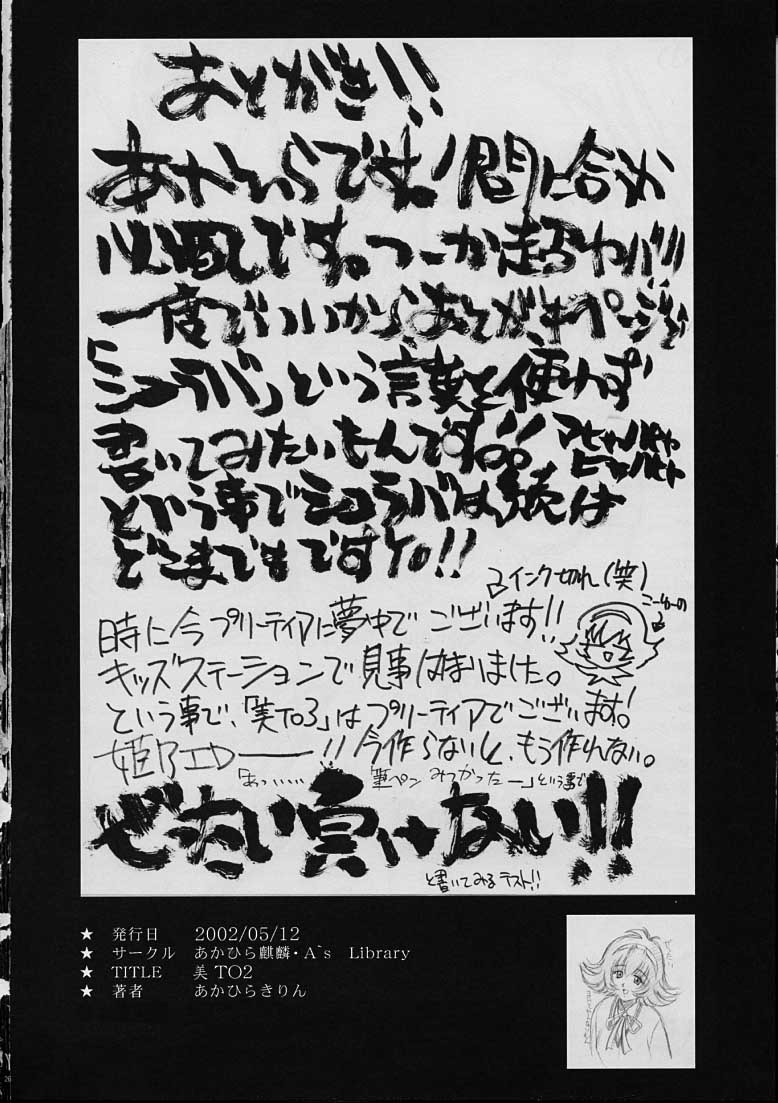 あとがき!!
あかひらです。!間に合うか
心配です。つーか超ヤバ!!
一度でいいから、あとがきページで
「シュラバ」という言葉を使わず
書いてみたいもんです!!。
という事でシュラバは続くは
どこまでもですYo!!
インク切れ(笑)
こーゆーの
時に今プリーティアに夢中でございます!!
キッズステーションで見事はまりました。
という事で、「美TO3」はプリーティアでございます!
姫乃ェロ――!!今作らないと、もう作れない。
「あっ……筆ペンみつかったー」という事で
ぜったい負けない!!
と書いてみるテスト!!
★ 発行日 2002/05/12
★ サークル あかひら麒麟・A`s Library
★ TITLE 美 TO2
★ 著者 あかひらきりん
26